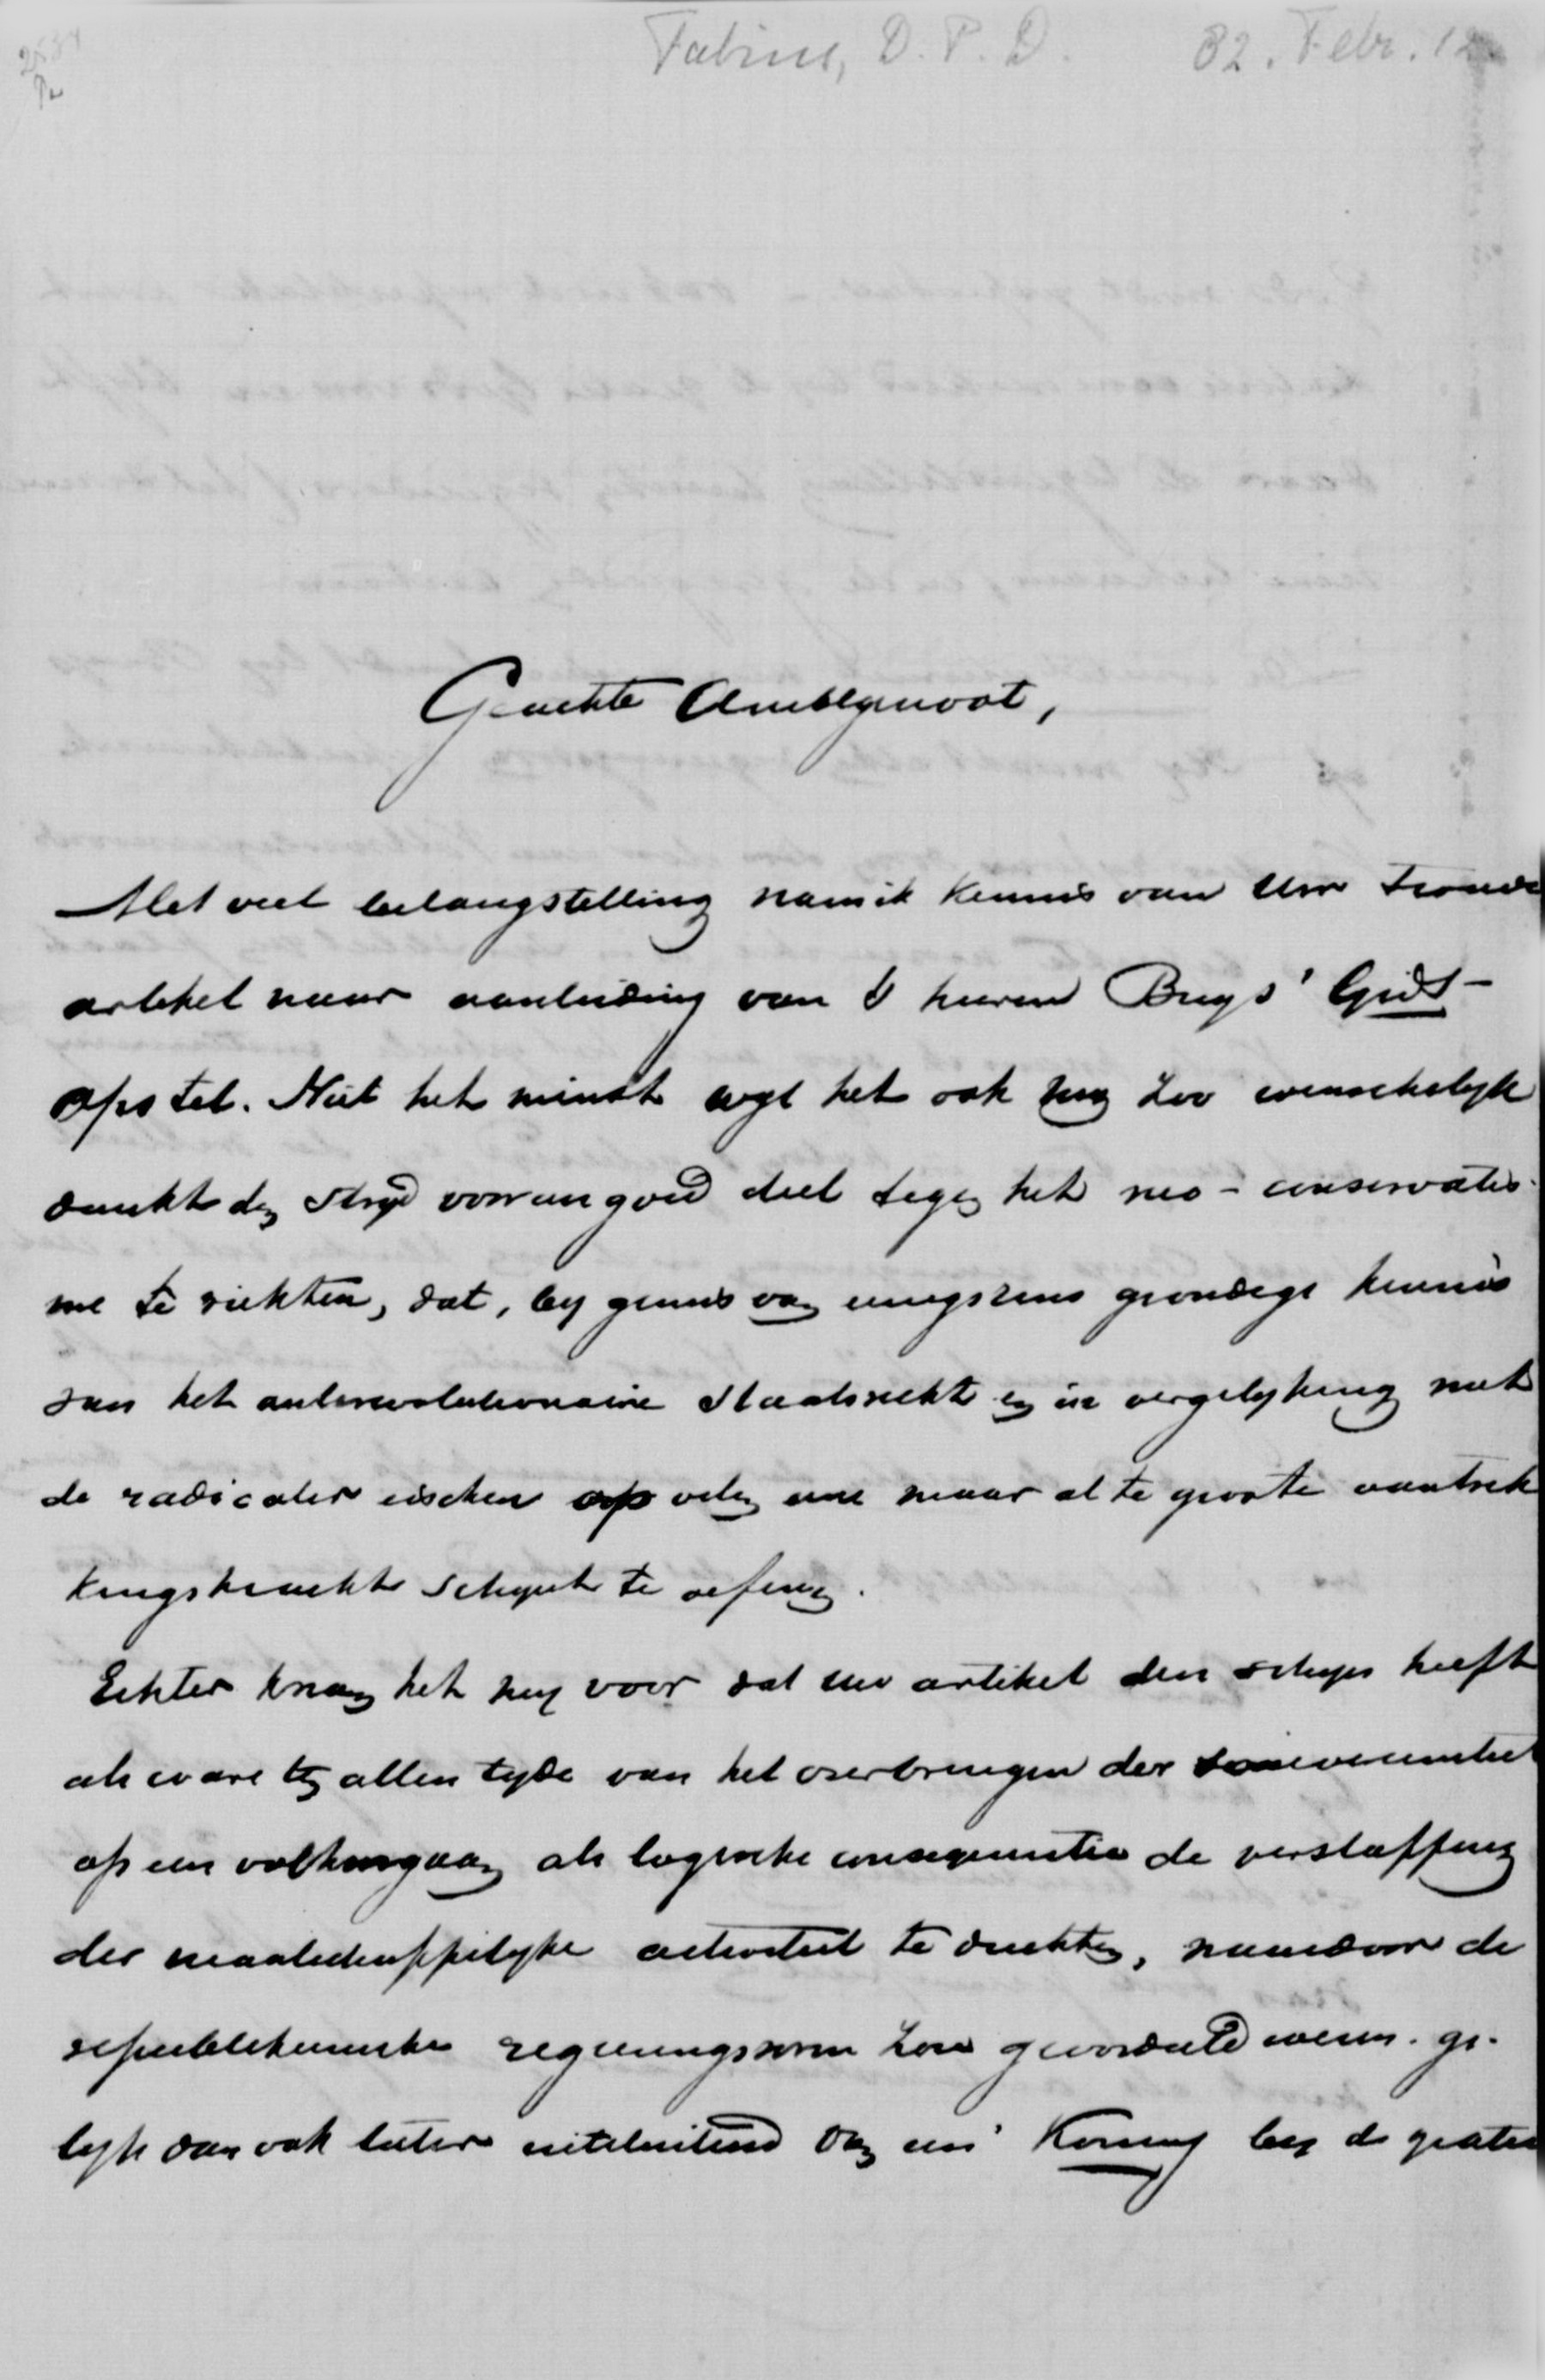 Fabius, D. P. D. 82. Febr. 12
2584
Geachte Ambtgenoot,
Met veel belangstelling nam ik kennis van Uw
artikel naar aanleiding van d heeren Buys' Gids-
opstel. Niet het minst wyl het ook my zoo wenschelyk
dunkt den stryd voor een goed deel tegen het neo-conservatis-
me te richten, dat, by gemis van eenigszins grondige kennis
van het antirevolutionaire Staatsrecht en in vergelyking met
de radicaler eischen op velen eene maar al te groote aantrek
kingskracht schynt te oefenen.
Echter kwam het my voor dat uw artikel den schyn heeft
als ware ten allen tyde van het overbrengen der souvereiniteit
op een volk als logische consequentie de
der activiteit te duchten, waardoor de
republikeinsche regeeringsvorm zou geoordeeld wezen. ge-
lyk dan ook later uitsluitend van een Koning by de gratie